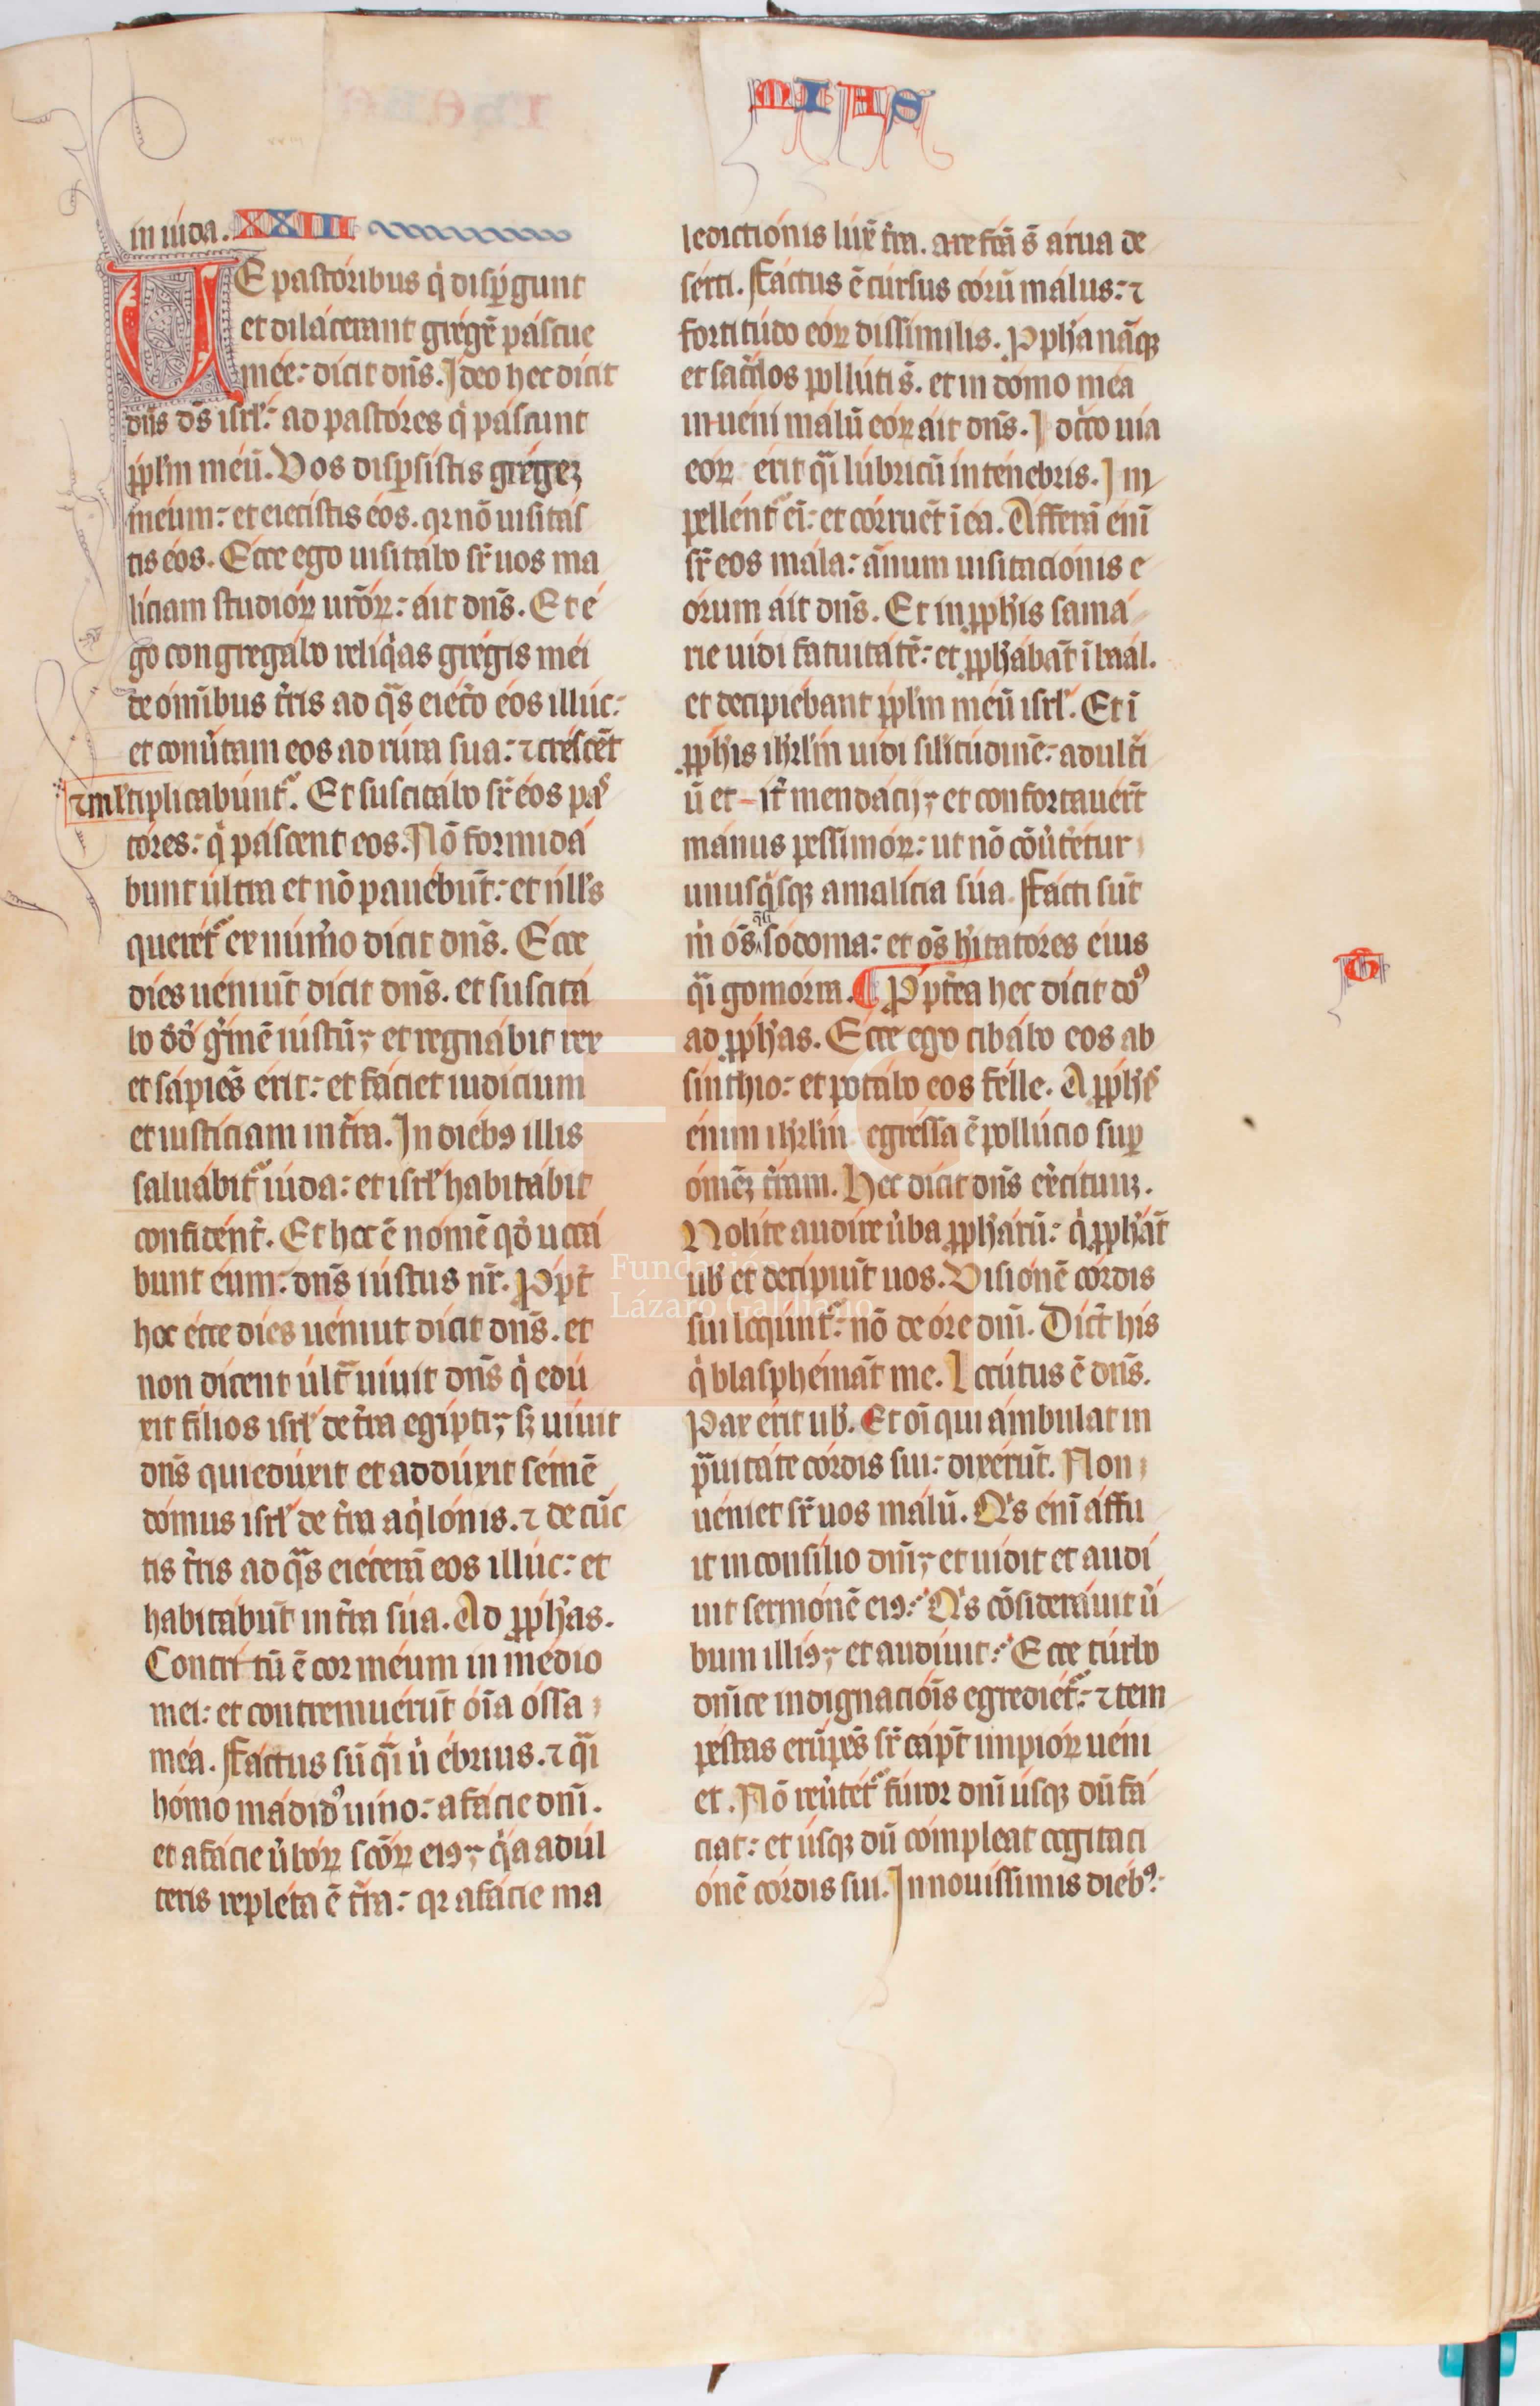 MIAS
in iúda. XXIII
UE pastóribus q̇ disꝑgunt
et dilácerant grégē páscue
mée: dícit dn̄s. Ideo hec dícit
dn̄s ds̄ isrl̓: ad pastóres q̇ páscunt
ppl̓m méū. Vos disꝑsístis grégeꝫ
méum: et eiecístis éos. qr nō uisitás
tis éos. Ecce ego uisitábo sr̄ uos ma
líciam studióꝝ ur̄óꝝ: áit dn̄s. Et é
go congregábo relíq̇as grégis méi
de ómībus tr̄is ad q̄s eiécr̄o éos illúc:
et conu̇tam eos ad rúra sua: ⁊ créscēt
⁊ml̓tiplicabúnt᷑. Et suscitábo sr̄ éos pas
tóres: q̇ páscent eos. Nō formidá
bunt últra et nō pauébūt: et nl̓l̓s
querét᷑ ex núm̓o dícit dn̄s. Ecce
díes uéniūt dícit dn̄s. et suscitá
bo dd̓ g̓mē iústū; et regnábit rex
et sápiēs érit: et fáciet iudícium
et iustíciam in tr̄a. In diébꝯ illis
saluábit᷑ iúda: et isrl̓ habitábit
confidént̓. Et hoc ē nómē qd̓ uocá
bunt eum: dn̄s iústus nr̄. Ꝓpt̓
hoc écce díes uéniūt dícit dn̄s. et
non dícent últ̄ uíuit dn̄s q̇ edú
xit fílios isrl̓ de tr̄a egípti; sꝫ uíuit
dn̄s qui edúxit et addúxit sémē
dómus isrl̓ de tr̄a aq̇lónis. ⁊ de cūc
tis tr̄is ad q̄s eiécerā eos illúc: et
habitábūt in tr̄a súa. Ad ꝓph̓as.
Contrítū ē cor méum in médio
mei: et contremuérūt óīa óssa
méa. Fáctus sū q̄i u̇ ébrius. ⁊ q̄i
hómo mádidꝰ uíno: a fácie dn̄i.
et a fácie u̇bóꝝ scōꝝ eiꝯ; q̇a adúl
teris repléta ē tr̄a: qr a fácie ma
ledictiónis lúx̄ tr̄a. arefcā s̄ árua de
sérti. Fáctus ē cúrsus córū málus: ⁊
fortitúdo eóꝝ dissímilis. Ꝓph̓a nāqꝫ
et sac̓dos pollúti s̄. et in dómo méa
inuéni málū eóꝝ áit dn̄s. Idc̓co uía
eóꝝ érit q̄i lúbricū in ténebris. Im
pellént᷑ eī: et córruēt ī ea. Afferā enī
sr̄ eos mála: ānum uisitaciónis e
órum áit dn̄s. Et in ꝓph̓is samá
rie uídi fatuitátē: et ꝓph̓ábāt ī báal.
et decipiébant ppl̓m méū isrl̓. Et ī
ꝓph̓is ih̓rl̓m uídi silitúdinē: adult̓i
ū et it̓ mendácij; et confortauér̄t
mánus pessimóꝝ: ut nō cōu̇tétur
unusq̇sqꝫ a malícia súa. Fácti sūt
m̓ os̄ q̄i sódoma: et os̄ h̓itatóres éius
q̄i gomórra. Ꝓpt̓ea hec dícit ds̄
ad ꝓph̓as. Ecce ego cibábo eos ab
sínthio: et potábo eos félle. A ꝓph̓is
énim ih̓rl̓m egréssa ē pollúcio suꝑ
ómēꝫ tr̄am. Hec dícit dn̄s ex̓cítuuꝫ.
Nolíte audíre u̇ba ꝓph̓árū: q̇ ꝓph̓āt
ub̓ et decípiūt uos. Visiónē córdis
sui locūnt᷑: nō de óre dn̄i. Dícūt his
q̇ blasphémāt me. Locútus ē dn̄s.
Pax érit ub̓. Et oī qui ámbulat in
p̄uitáte córdis sui: dixérūt. Non
uéniet sr̄ uos málū. Q̇s énī áffu
it in consílio dn̄i; et uídit et audí
uit sermónē eiꝯ: Q̇s cōsideráuit u̇
bum illíꝯ; et audíuit: Ecce túrbo
dn̄ice indignaciōis egrediét᷑: ⁊ tem
péstas erūpēs sr̄ cápt̄ impióꝝ uéni
et. Nō reu̇tét᷑ fúror dn̄i úsqꝫ dū fá
ciat: et úsqꝫ dū cómpleat cogitaci
ónē córdis sui. In nouíssimis diébꝰ:
G
Fundación
Lázaro Galdiano